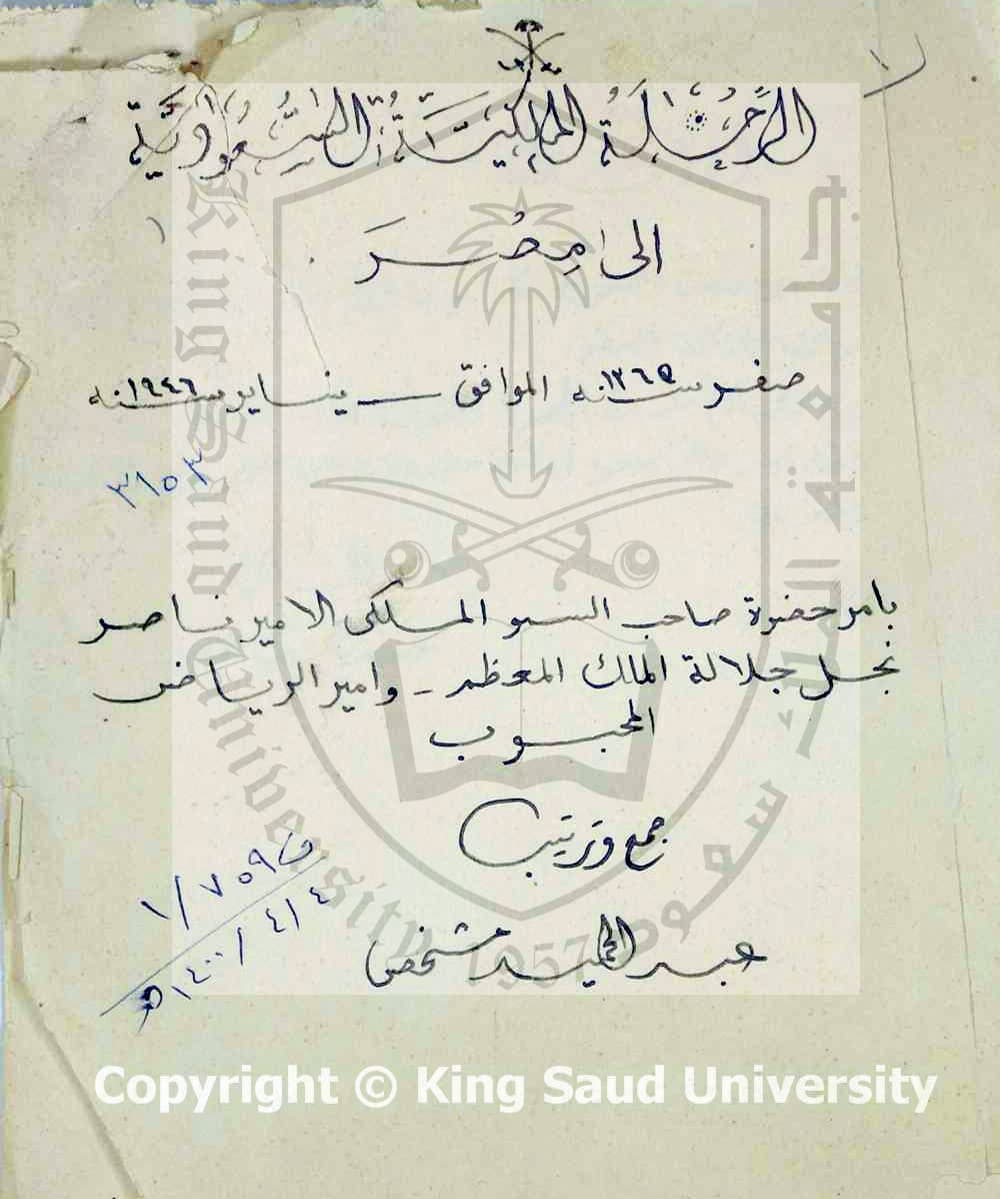 الرحلة الملكية السعودية
الى مصر
صفر سنه ١٣٦٥ الموافق ـ يناير سنه ١٩٤٦
٣١٥٣
بامر حضرة صاحب السمو الملكى الامير ناصر
نجل جلالة الملك المعظم - وامير الرياض
المحبوب
جمع وترتيب
عبد الحميد مشخص
ف ٧٥٩/١
٤/٤/١٤٠٠ه
جامعة الملك سعود
King Saud University
1957
Copyright © King Saud University